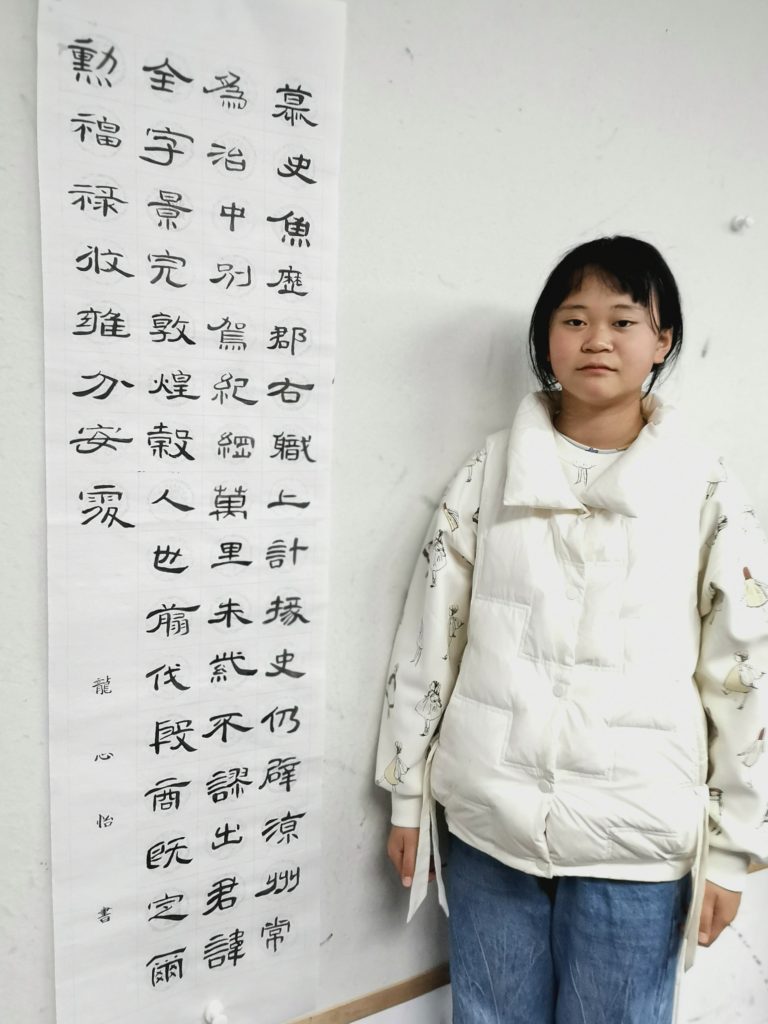 慕史魚歷郡右職上計掾史仍辟涼州常
為治中別駕紀綱萬里朱紫不謬出君諱
全字景完敦煌榖人也翦伐殷商既定爾
勲福祿攸雍分安處
龍心怡書